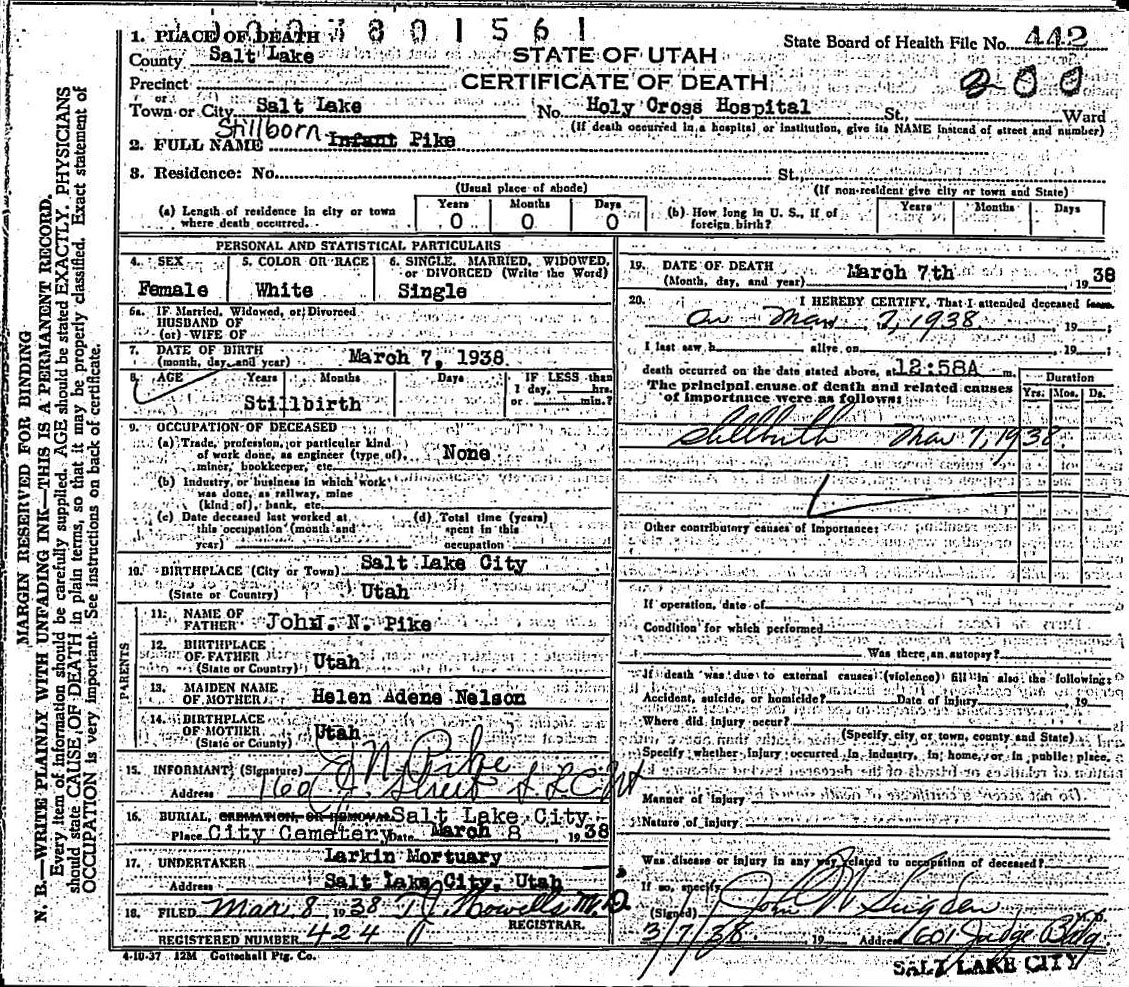 0003801561
1. PLACE OF DEATH
County Salt Lake
STATE OF UTAH
CERTIFICATE OF DEATH
State Board of Health File No. 442
200
Precinct
or
Town or City Salt Lake No. Holy Cross Hospital St., Ward
(If death occurred in a hospital or institution, give its NAME instead of street and number)
Stillborn
2. FULL NAME Infant Pike
3. Residence: No. St.,
(Usual place of abode) (If non-resident give city or town and State)
(a) Length of residence in city or town where death occurred. Years 0 Months 0 Days 0
(b) How long in U. S., if of foreign birth? Years Months Days
PERSONAL AND STATISTICAL PARTICULARS
4. SEX Female
5. COLOR OR RACE White
6. SINGLE, MARRIED, WIDOWED, or DIVORCED (Write the Word) Single
6a. IF Married, Widowed, or Divorced
HUSBAND OF
(or) WIFE OF
7. DATE OF BIRTH
(month, day, and year) March 7, 1938
8. AGE Years Months Days IF LESS than
1 day, hrs.
or min.?
Stillbirth
9. OCCUPATION OF DECEASED
(a) Trade, profession, or particular kind
of work done, as engineer (type of), None
minor, bookkeeper, etc.
(b) Industry or business in which work
was done, as railway, mine
(kind of), bank, etc.
(c) Date deceased last worked at
this occupation (month and
year)
(d) Total time (years)
spent in this
occupation
10. BIRTHPLACE (City or Town) Salt Lake City
(State or Country) Utah
PARENTS
11. NAME OF
FATHER John N. Pike
12. BIRTHPLACE
OF FATHER Utah
(State or Country)
13. MAIDEN NAME
OF MOTHER Helen Adene Nelson
14. BIRTHPLACE
OF MOTHER Utah
(State or County)
15. INFORMANT (Signature) J N Pike
Address 160 J. Street S L C Ut
16. BURIAL, CREMATION, OR REMOVAL Salt Lake City
Place City Cemetery Date March 8, 1938
17. UNDERTAKER Larkin Mortuary
Address Salt Lake City, Utah
18. FILED Mar 8 1938 T J Howells M. D.
REGISTRAR.
REGISTERED NUMBER 424
19. DATE OF DEATH
(Month, day, and year) March 7th, 1938
20. I HEREBY CERTIFY, That I attended deceased from
on Mar 7, 1938, 19 ;
I last saw h alive on , 19 ;
death occurred on the date stated above, at 12:58A m.
The principal cause of death and related causes
of importance were as follows:
Duration
Yrs. Mos. Ds.
Stillbirth Mar 7, 1938
Other contributory causes of importance:
If operation, date of
Condition for which performed
Was there an autopsy?
If death was due to external causes (violence) fill in also the following:
Accident, suicide, or homicide? Date of injury , 19
Where did injury occur?
(Specify city or town, county and State)
Specify whether injury occurred in industry, in home, or in public place,
Manner of injury
Nature of injury
Was disease or injury in any way related to occupation of deceased?
If so, specify
(Signed) John W Sugden M. D.
3/7/38 , 19 Address 601 Judge Bldg.
SALT LAKE CITY
4-10-37 12M Gottschall Ptg. Co.
MARGIN RESERVED FOR BINDING
N. B.—WRITE PLAINLY WITH UNFADING INK—THIS IS A PERMANENT RECORD.
Every item of information should be carefully supplied. AGE should be stated EXACTLY. PHYSICIANS
should state CAUSE OF DEATH in plain terms, so that it may be properly classified. Exact statement of
OCCUPATION is very important. See instructions on back of certificate.